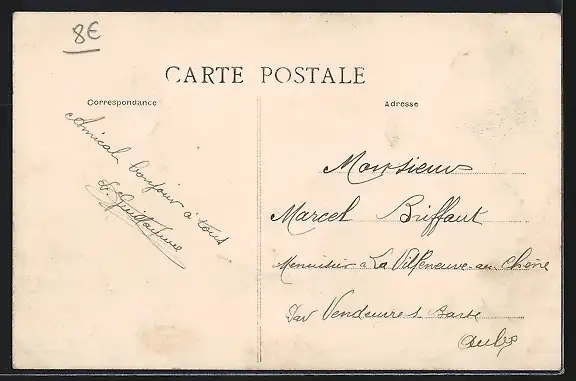 8€
CARTE POSTALE
Correspondance
Adresse
Amical bonjour à tous
L. Guillaume
Monsieur
Marcel Briffaut
Menuisier à La Villeneuve-au-Chêne
Par Vendeuvre s Barse
Aube